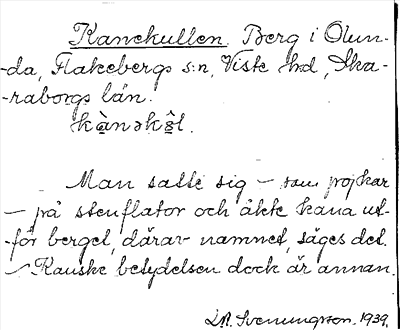 Kanekullen. Berg i Olun-
-da, Flakebergs s:n, Viste hd, Ska-
-raborgs län.
kànəkŝl.
Man satte sig – som pojkar
– på stenflator och åkte kana ut-
-för berget, därav namnet, säges det.
– Kanske betydelsen dock är annan.
Svenungsson. 1939.